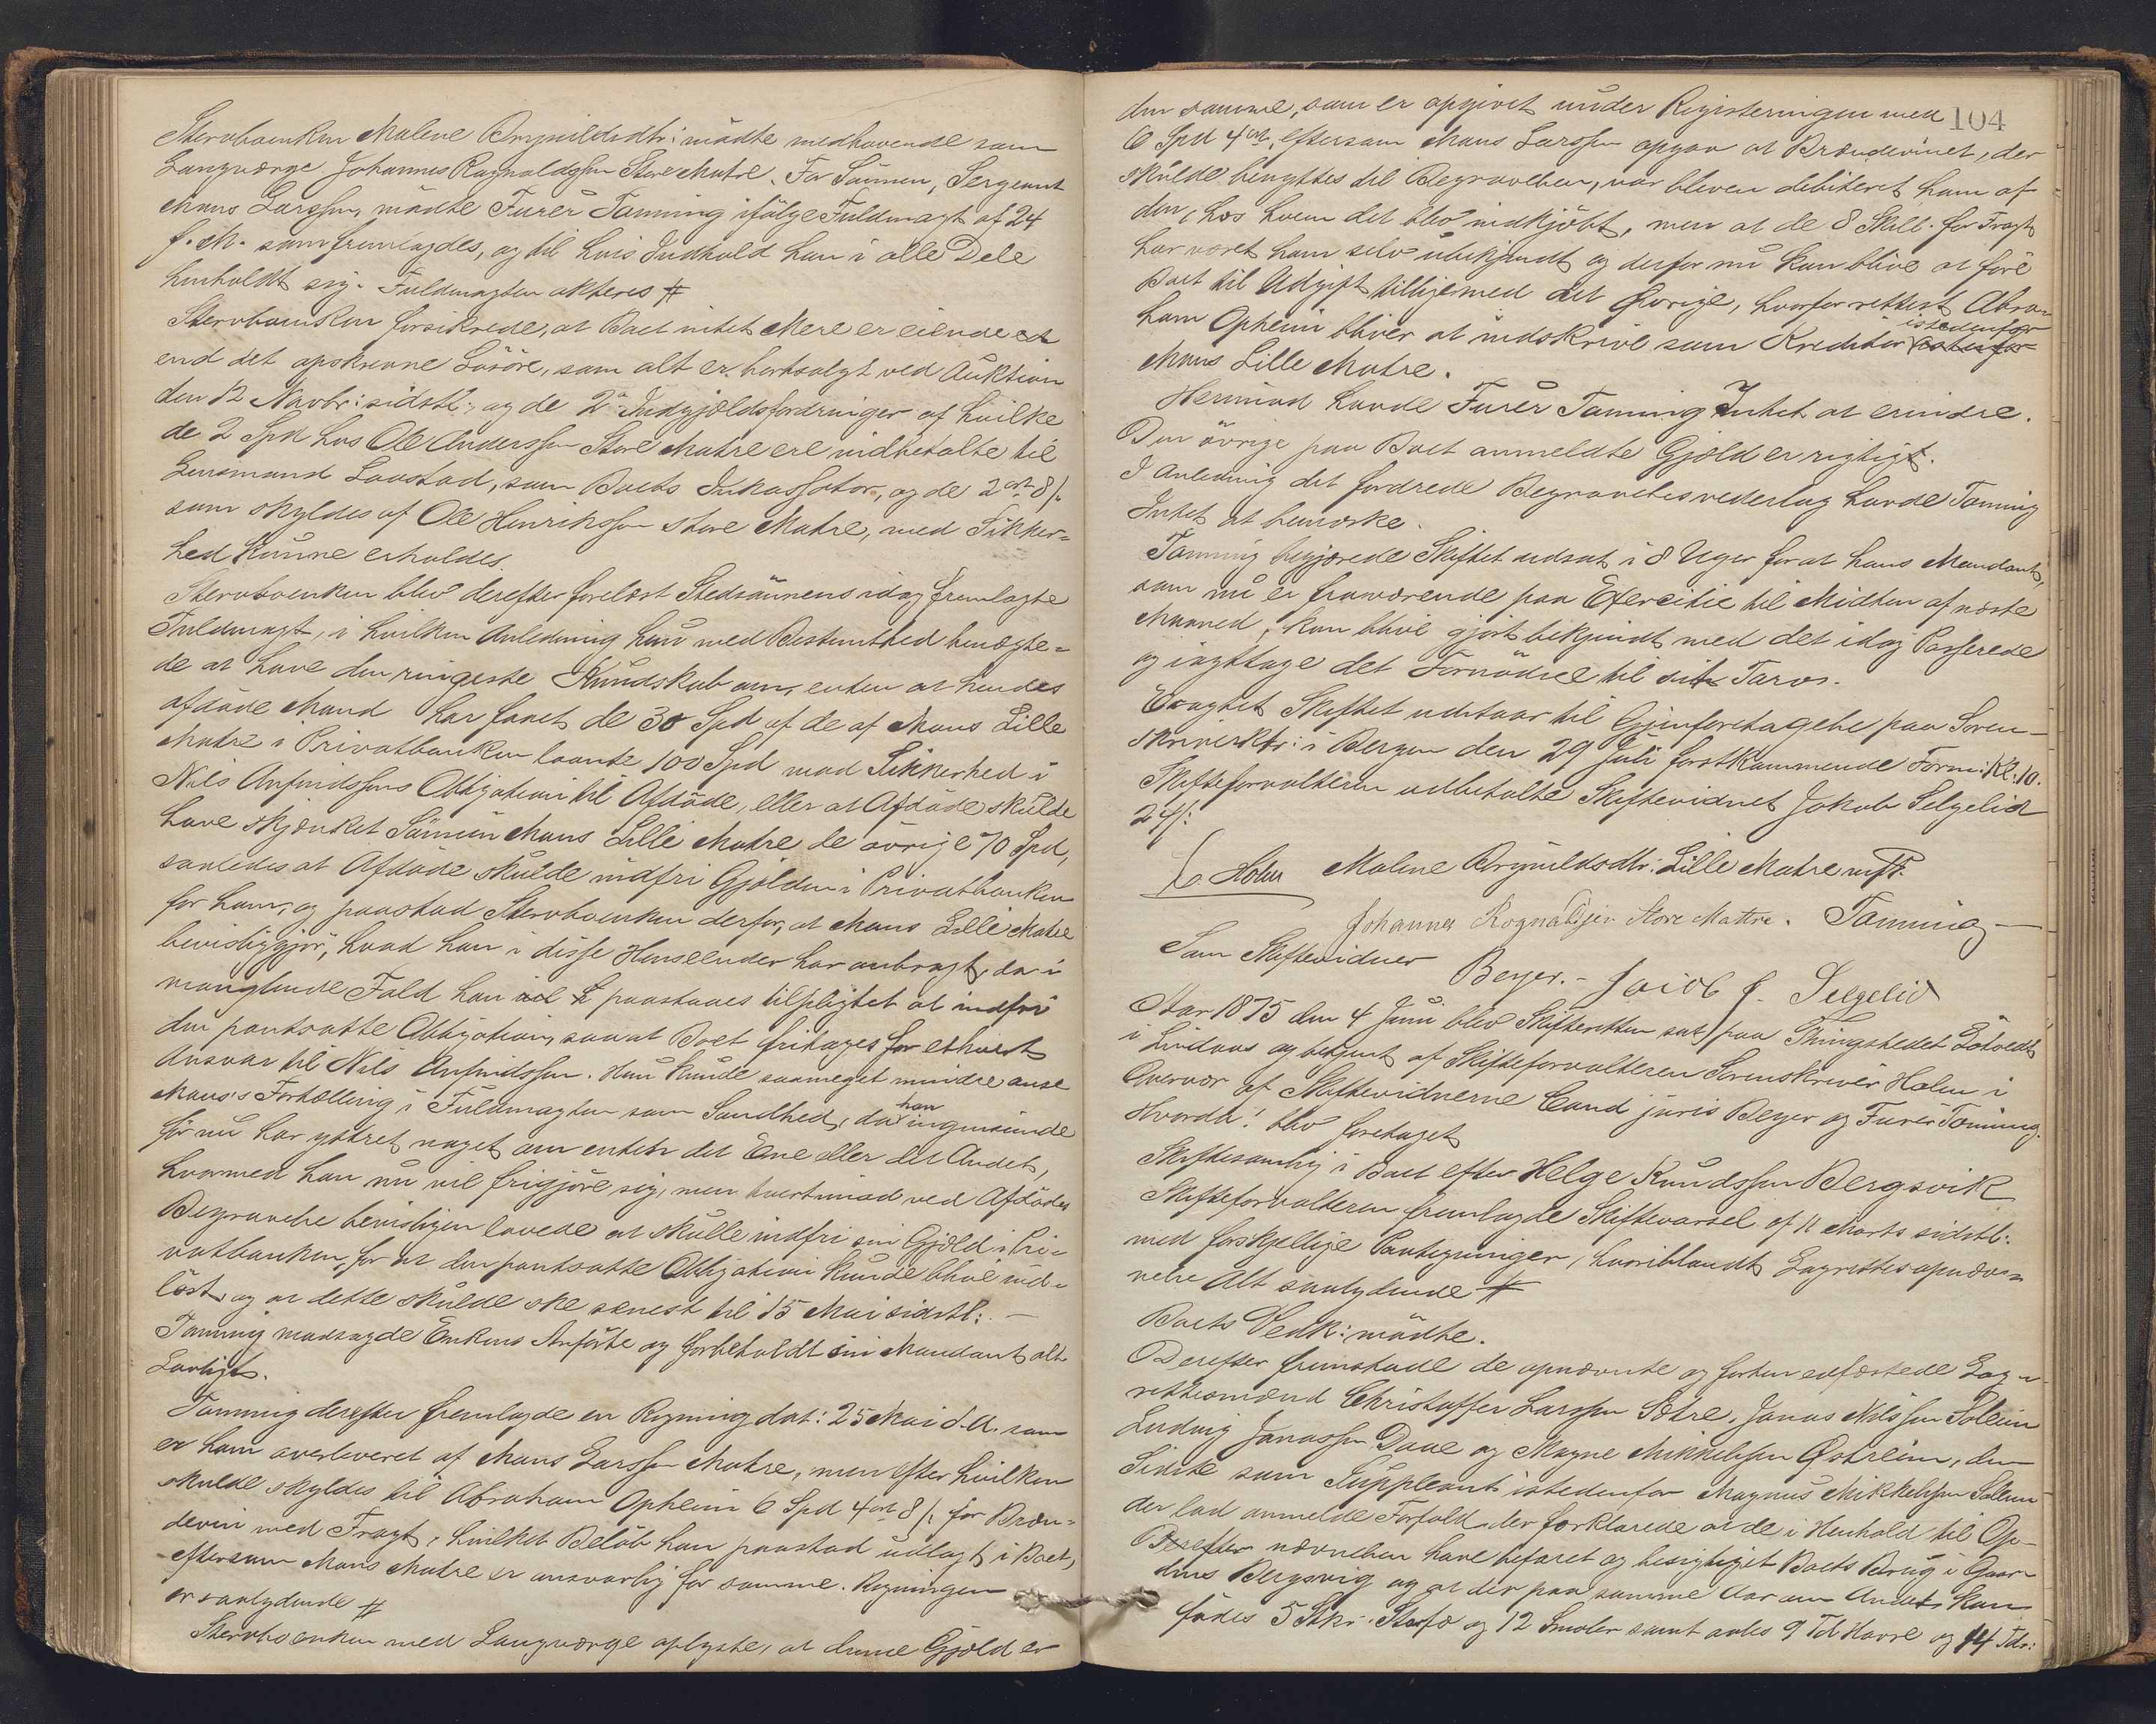 Stervboenken Malene Brynildsdtr: mödte medhavende som
Laugværge Johannes Ragnaldssen Store Matre. For Sönnen, Sergeant
Mons Larssen, mödte Furér Tanning ifölge Fuldmagt af 24
f. M. som fremlagdes, og til hvis Indhold han i alle Dele
henholdt sig. Fuldmagten akteres #
Stervboenken forsikrede, at Boet intet Mere er eiende
end det opskrevne Lösöre, som alt er bortsolgt ved Auktion
den 12 Novbr: sidstl:, og de 2de Indgjældsfordringer af hvilke
de 2 Spd hos Ole Anderssen Store Matre ere indbetalte til
Lensmand Loostad, som Boets Inkassator, og de 2 ort 8 /:
som skyldes af Ole Henrikssen Store Matre, med Sikker=
hed kunne erholdes.
Stervboenken blev derefter forelæst Stedsönnens idag fremlagte
Fuldmagt, i hvilken Anledning hun med Bestemthed benægte=
de at have den ringeste Kundskab om, enten at hendes
afdöde Mand har faaet de 30 Spd af de af Mons Lille
Matre i Privatbanken laante 100 Spd mod Sikkerhed i
Nils Anfindssens Obligation til Afdöde, eller at Afdöde skulde
have skjænket Sönnen Mons Lille Matre de övrige 70 Spd,
saaledes at Afdöde skulde indfri Gjælden i Privatbanken
for ham, og paastod Stervboenken derfor, at Mons Lille Matre
bevisliggjör, hvad han i disse Henseender har anbragt, da i
manglende Fald han paastaaes tilpligtet at indfri
den pantsatte Obligation, saa at Boet fritages for ethvert
Ansvar til Nils Anfindssen. Hun kunde saameget mindre anse
Mons's Fortælling i Fuldmagten som Sandhed, da han ingensinde
för nu har yttret noget om enten det Ene eller det Andet,
hvormed han nu vil frigjöre sig, men tvertimod ved Afdödes
Begravelse bevisligen lovede at skulle indfri sin Gjæld i Pri=
vatbanken, for at den pantsatte Obligation kunde blive ud=
löst, og at dette skulde ske senest til 15 Mai sidstl: -
Tanning modsagde Enkens Anförte og forbeholdt sin Mandant alt
Lovligt.
Tanning derefter fremlagde en Regning dat: 25 Mai d. A. som
er ham overleveret af Mons Larssen Matre, men efter hvilken
skulde skyldes til Abraham Opheim 6 Spd 4 ort 8 /: for Bræn=
devin med Fragt, hvilket Belöb han paastod udlagt i Boet,
eftersom Mons Matre er ansvarlig for samme. Regningen
er saalydende #
Stervboenken med Laugværge oplyste, at denne Gjæld er
104
den samme, som er opgivet under Registeringen med
6 Spd 4 ort, eftersom Mons Larssen opgav at Brændevinet, der
skulde benyttes til Begravelsen, var bleven debiteret ham af
den, hos hvem det blev indkjöbt, men at de 8 Skill. for Fragt
har været ham selv ubekjendt og derfor nu kan blive at före
Boet til Udgift tilligemed det Övrige, hvorfor rettest Abra=
ham Opheim bliver at indskrive som Kreditor istedenfor
Mons Lille Matre.
Herimod havde Furér Tanning Intet at erindre.
Den övrige paa Boet anmeldte Gjæld er rigtigt.
I Anledning det fordrede Begravelsesvederlag havde Tanning
Intet at bemærke.
Tanning begjærede Skiftet udsat i 8 Uger for at hans Mandant,
som nu er fraværende paa Exercitie til Midten af næste
Maaned, kan blive gjort bekjendt med det idag Passerede
og iagttage det Fornödne til sit Tarv.
Eragtet Skiftet udstaar til Gjenforetagelse paa Soren-
skriverktr: i Bergen den 29 Juli förstkommende Form: Kl. 10.
Skifteforvalteren udbetalte Skiftevidnet Jakob Selgelid
24 /:
Holm Malene Brynildsdtr: Lille Matre m f P.
Johannes Rognaldsen Store Mattre. Tanning
Som Skiftevidner
Beyer. - Jacob J. Selgelid
Aar 1875 den 4 Juni blev Skifteretten sat paa Thingstedet
i Lindaas og betjent af Skifteforvalteren Sorenskriver Holm i
Overvær af Skiftevidnerne Cand juris Beyer og Furér Tanning.
Hvorda! blev foretaget
Skiftesamling i Boet efter Helge Knudssen Bergsvik
Skifteforvalteren fremlagde Skiftevarsel af 11 Marts sidstl:
med forskjellige Paategninger, hvoriblandt Lagrettesopnæv=
nelse Alt saalydende #
Boets Vedk: mödte.
Derefter fremstode de opnævnte og forhen edfæstede Lag=
rettesmænd Christoffer Larssen Sætre, Jonas Nilssen Soleim
Ludvig Jonassen Daae og Magne Mikkelssen Östreim, den
Sidste som Suppleant istedenfor Magnus Mikkelssen Soleim
der lod anmelde Forfald, der forklarede at de i Henhold til Op-
nævnelsen have befaret og besigtiget Boets Brug i Gaar-
dens Bergsvig og at der paa samme Aar om Andet kan
födes 5 Stkr: Storfæ og 12 Smaler samt avles 9 Td Havre og 14 Tdr: